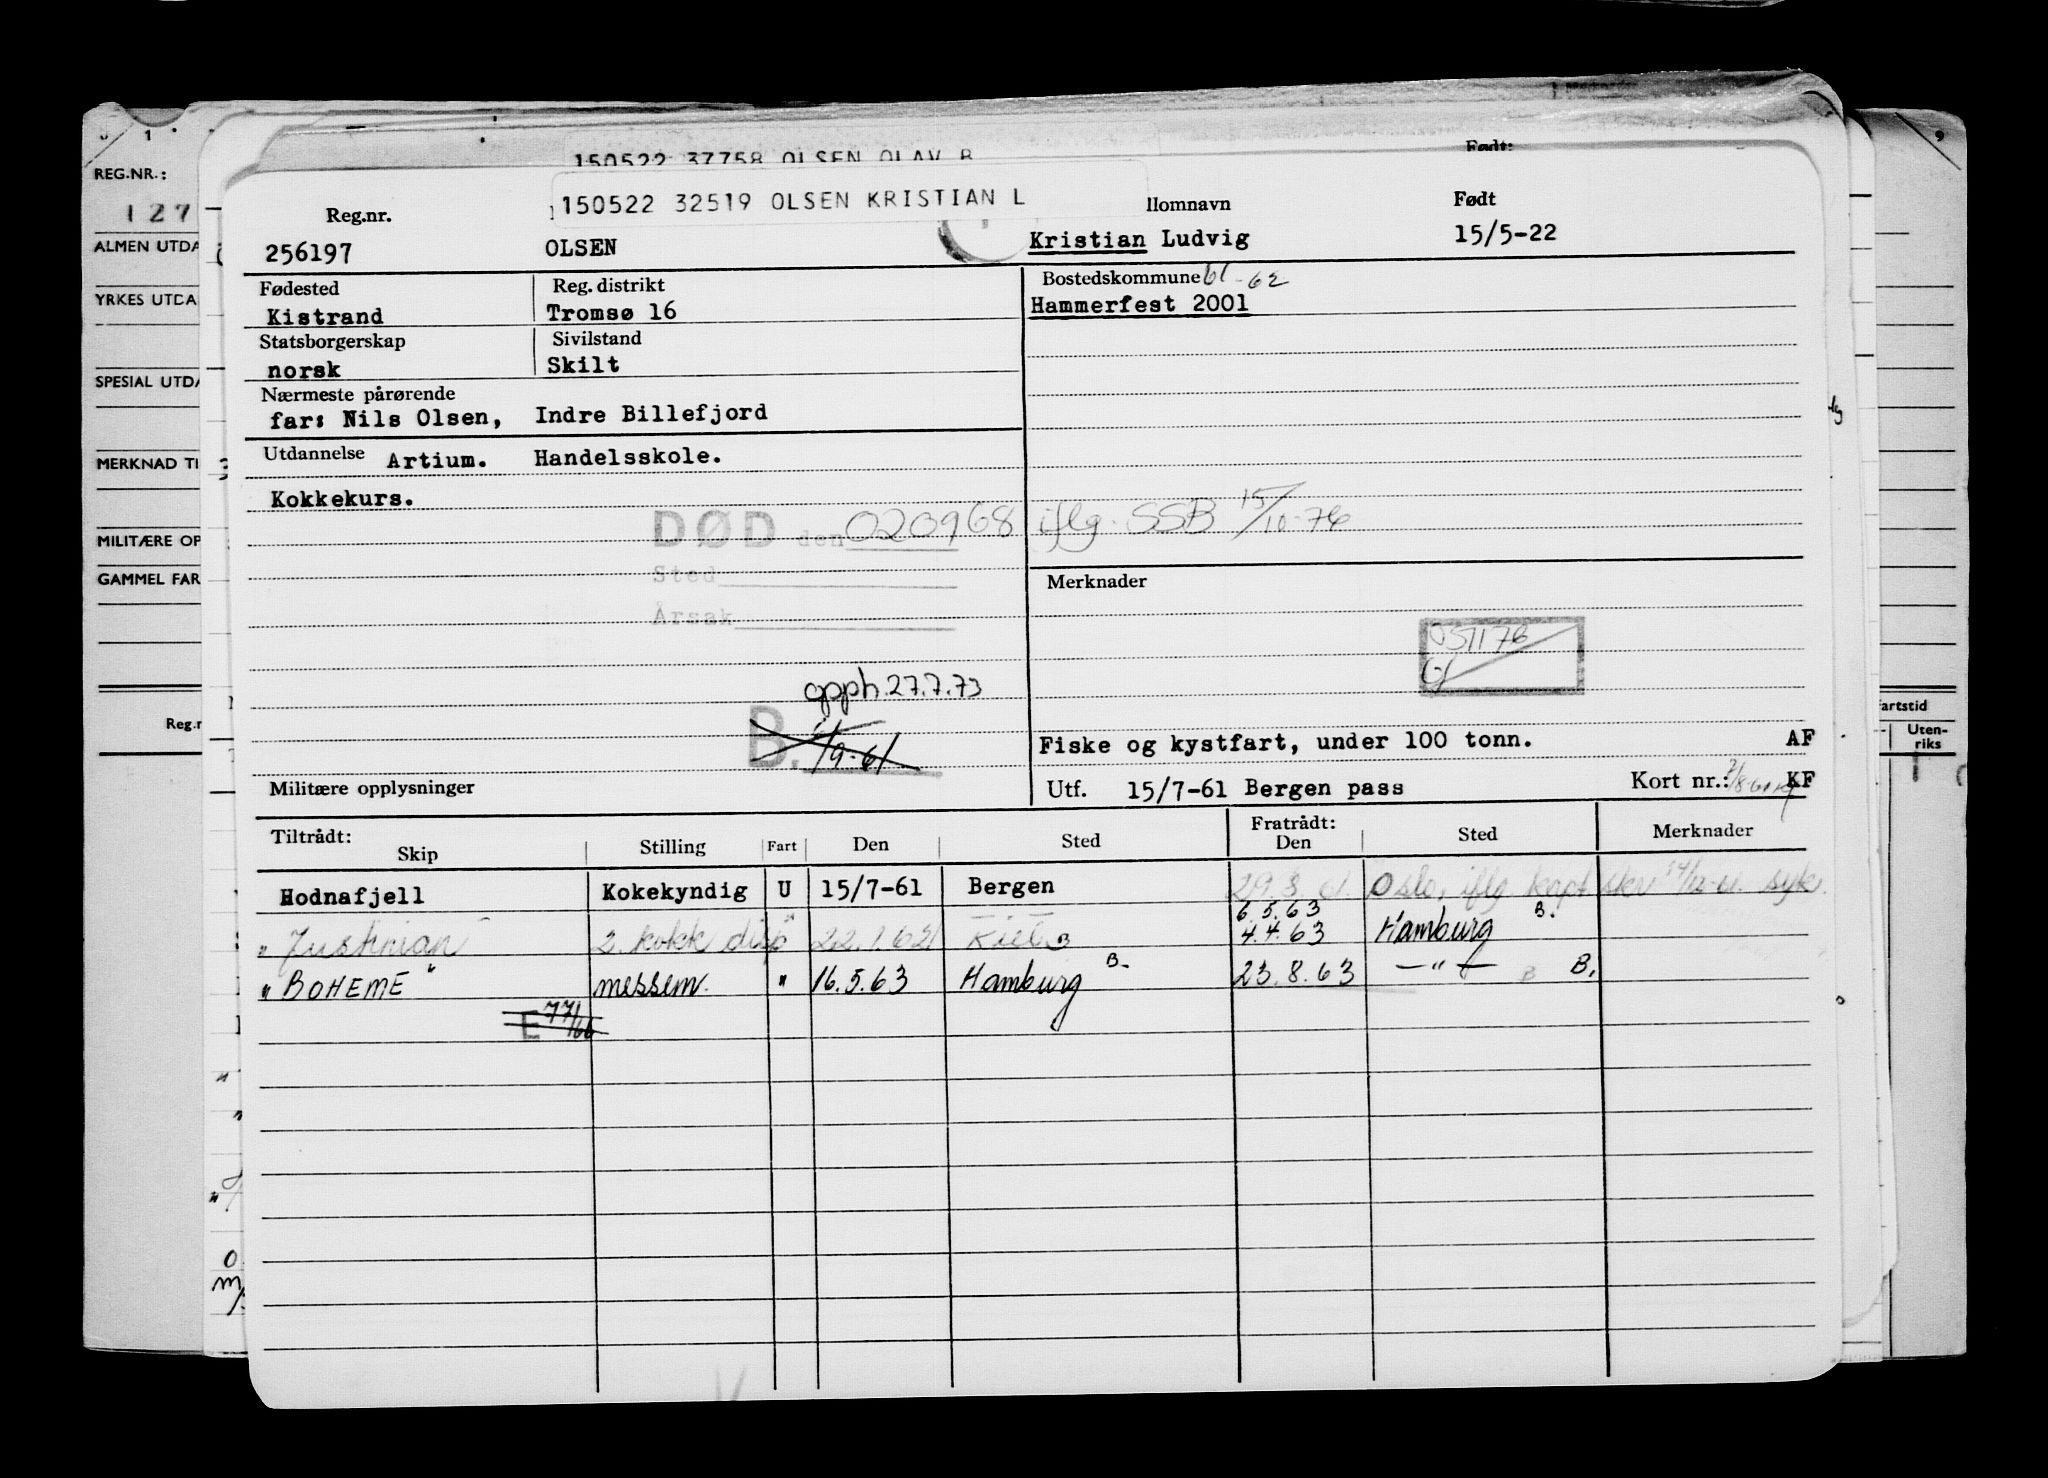 150522 37758 OLSEN OLAV B
Født:
150522 32519 OLSEN KRISTIAN L
Reg.nr.
llomnavn
Født
256197 OLSEN Kristian Ludvig 15/5-22
Fødested
Reg. distrikt
Bostedskommune 61-62
Kistrand
Tromsø 16
Hammerfest 2001
Statsborgerskap
Sivilstand
norsk
Skilt
Nærmeste pårørende
far: Nils Olsen, Indre Billefjord
Utdannelse Artium. Handelsskole.
Kokkekurs.
DØD den 020968 iflg. SSB 15/10-76
Sted
Årsak
Merknader
051176
opph. 27.7.73
B. 1/9-61
Fiske og kystfart, under 100 tonn. AF
Militære opplysninger
Utf. 15/7-61 Bergen pass
Kort nr.: KF
Tiltrådt:
Skip
Stilling
Fart
Den
Sted
Fratrådt:
Den
Sted
Merknader
Hodnafjell Kokekyndig U 15/7-61 Bergen 29.8.61. Oslo, iflg kapt. skr syk.
6.5.63 B.
" Justinian 2. kokk disp " 22.1.62 Kiel B 4.4.63 Hamburg
" BOHEME " messem. " 16.5.63 Hamburg B. 23.8.63 —"— B B.
E 77/66
REG.NR.:
127
ALMEN UTDA
YRKES UTDA
SPESIAL UTDA
MERKNAD TI
MILITÆRE OP
GAMMEL FAR
Reg.n
artstid
Uten-
riks
1
9